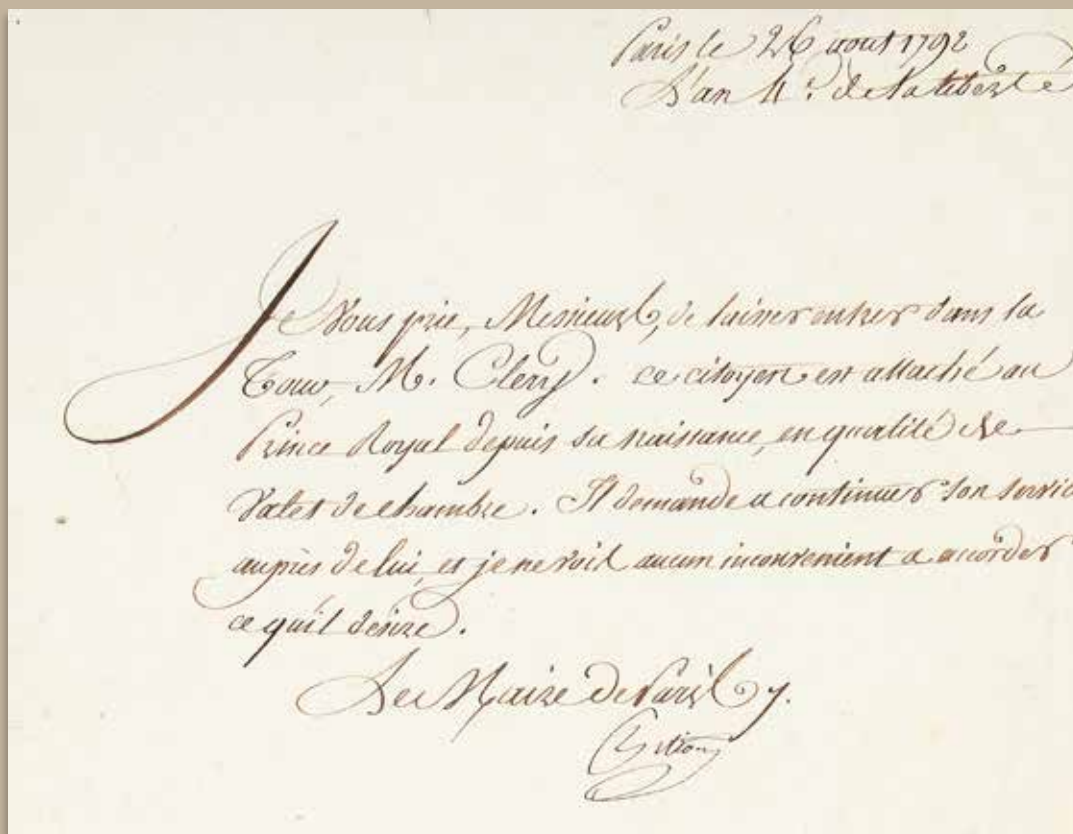 Paris le 26 aout 1792
L'an 4e. de la liberté
Je Vous prie, Messieurs, de laisser entrer dans la
Tour, M. Clery. ce citoyen est attaché au
Prince Royal depuis sa naissance, en qualité de
Valet de chambre. Il demande a continuer son servic
auprès de lui, et je ne vois aucun inconvenient a accorder
ce qu'il désire.
Le Maire de Paris
Petion